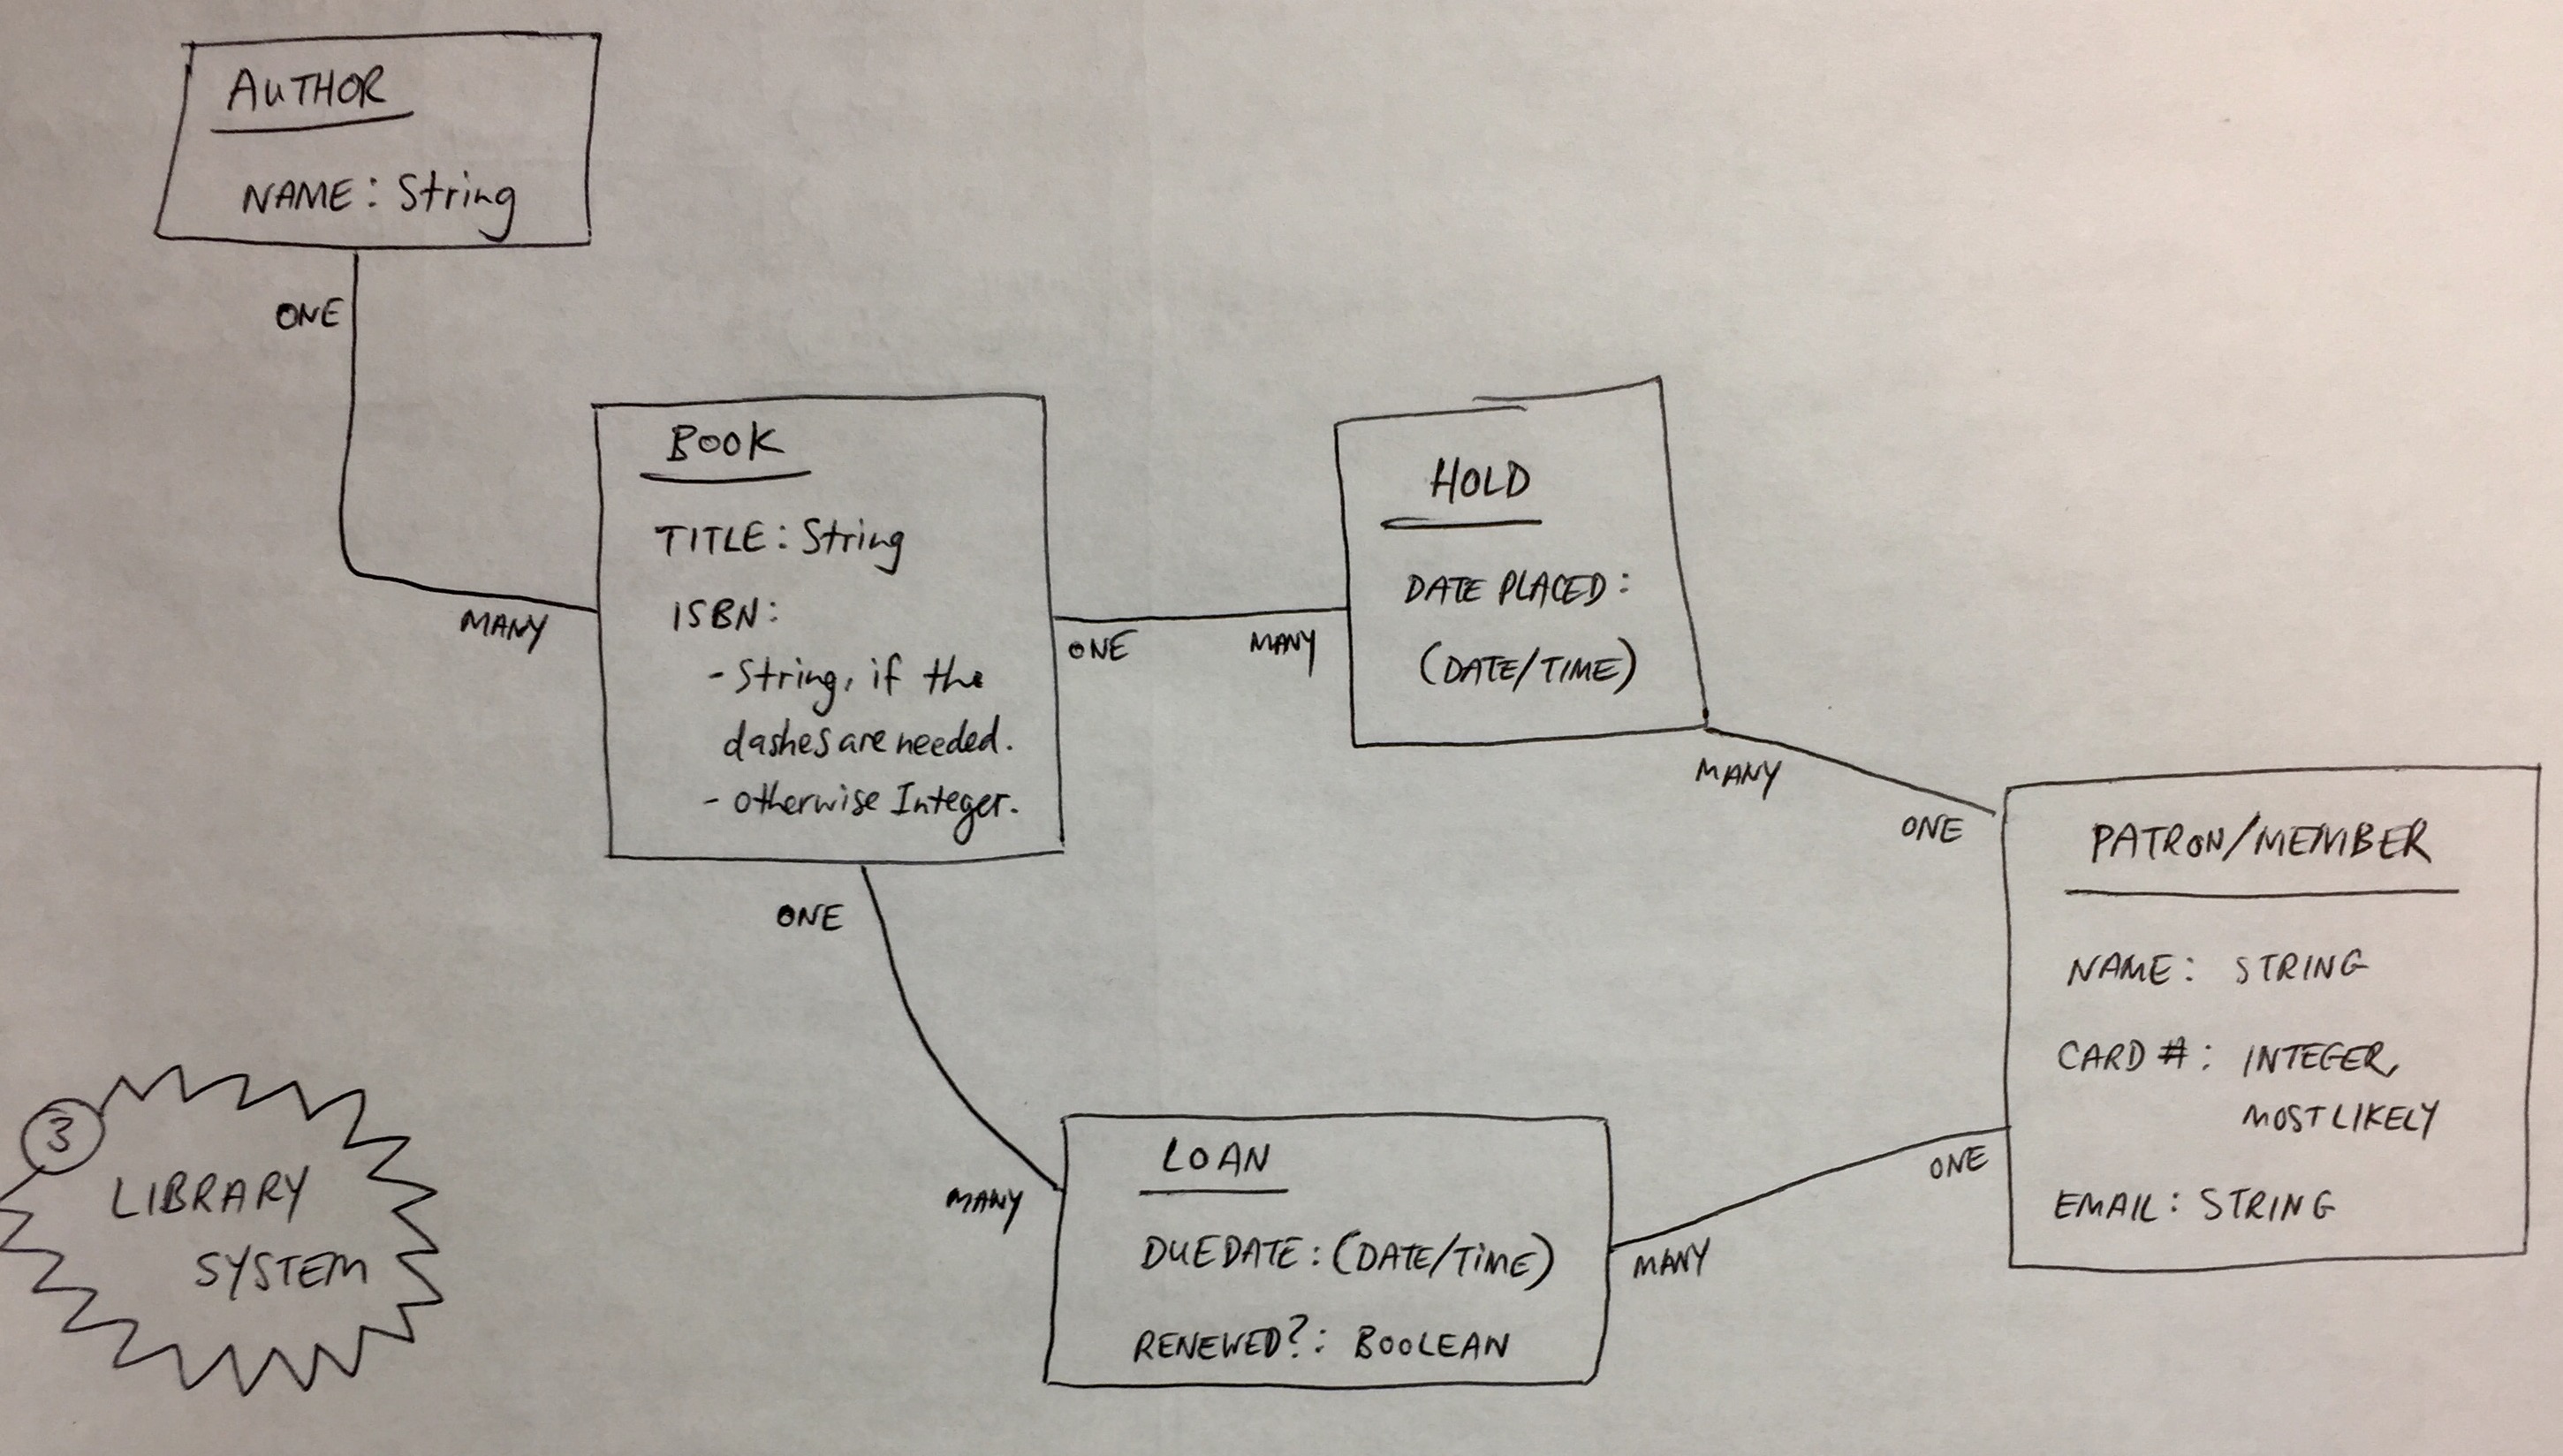 AUTHOR
NAME: String
ONE
MANY
BOOK
TITLE: String
ISBN:
- String, if the
dashes are needed.
- otherwise Integer.
ONE
MANY
HOLD
DATE PLACED:
(DATE/TIME)
MANY
ONE
PATRON/MEMBER
NAME: STRING
CARD #: INTEGER,
MOST LIKELY
EMAIL: STRING
ONE
MANY
LOAN
DUE DATE: (DATE/TIME)
RENEWED?: BOOLEAN
MANY
ONE
3
LIBRARY
SYSTEM